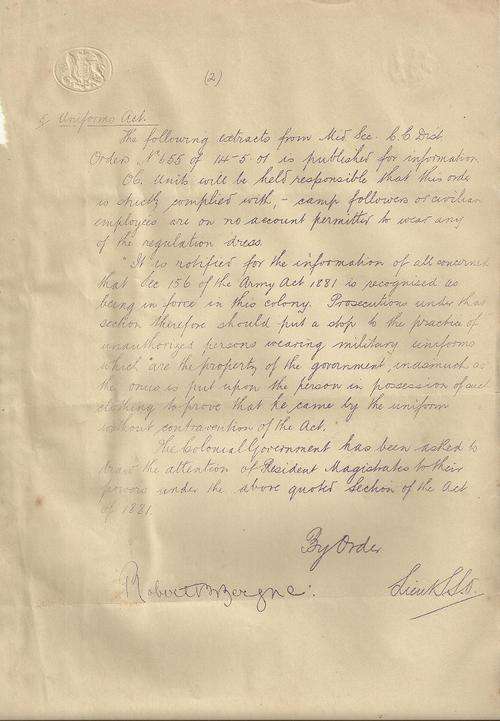 (2)
Uniforms Act.
The following extracts from Mid Sec. C.C Dist
Orders Nº 655 of 14-5-01 is published for information
OC. Units will be held responsible that this orde
is strictly complied with, - camp followers or civilian
employees are on no account permitted to wear any
of the regulation dress.
"It is notified for the information of all concerned
that Sec 156 of the Army Act 1881 is recognised as
being in force in this colony. Prosecutions under that
section therefore should put a stop to the practice of
unauthorized persons wearing military uniforms
which are the property of the government, inasmuch as
the onus is put upon the person in possession of such
clothing to prove that he came by the uniform
without contravention of the Act.
The Colonial Government has been asked to
draw the attention of Resident Magistrates to their
powers under the above quoted Section of the Act
of 1881.
By Order
Robert
Lieut